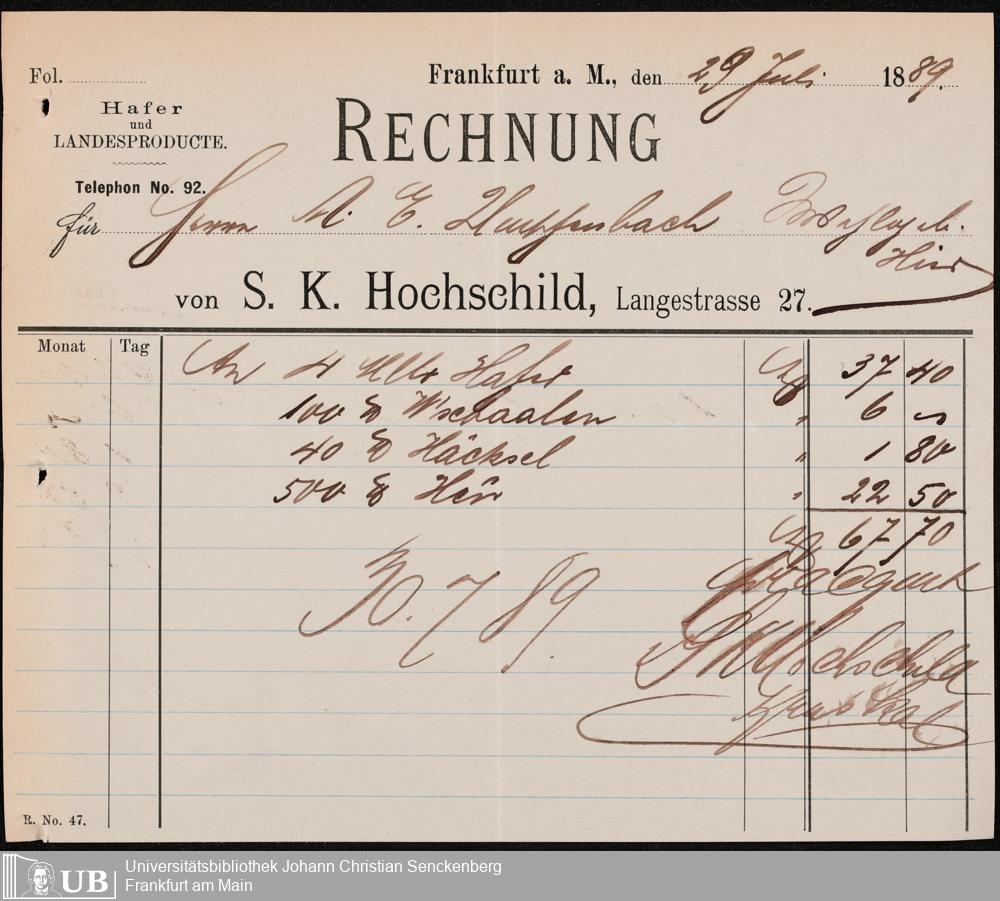 Fol.
Frankfurt a. M., den 29 Juli 1889.
Hafer
und
LANDESPRODUCTE.
RECHNUNG
Telephon No. 92.
für Herrn M. E.
Hier
von S. K. Hochschild, Langestrasse 27.
Monat Tag
An 4 Hafer 37 40
100 ℔ W'schaalen " 6 "
40 ℔ Häcksel " 1 80
500 ℔ Heu " 22 50
67 70
30. 7 89.
SKHochschild
R. No. 47.
UB
Universitätsbibliothek Johann Christian Senckenberg
Frankfurt am Main